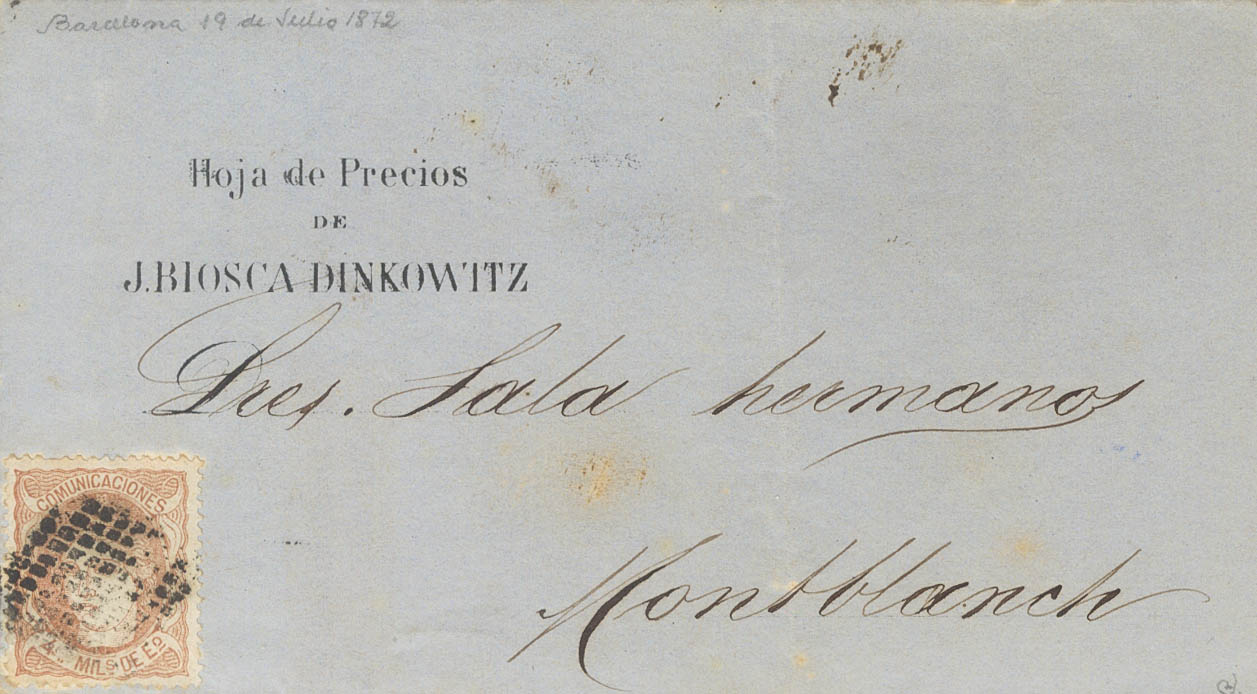 Barcelona 19 de Julio 1872
Hoja de Precios
DE
J. BIOSCA DINKOWITZ
Sres. Sala hermanos
Montblanch
COMUNICACIONES
4 MILS. DE Eo.